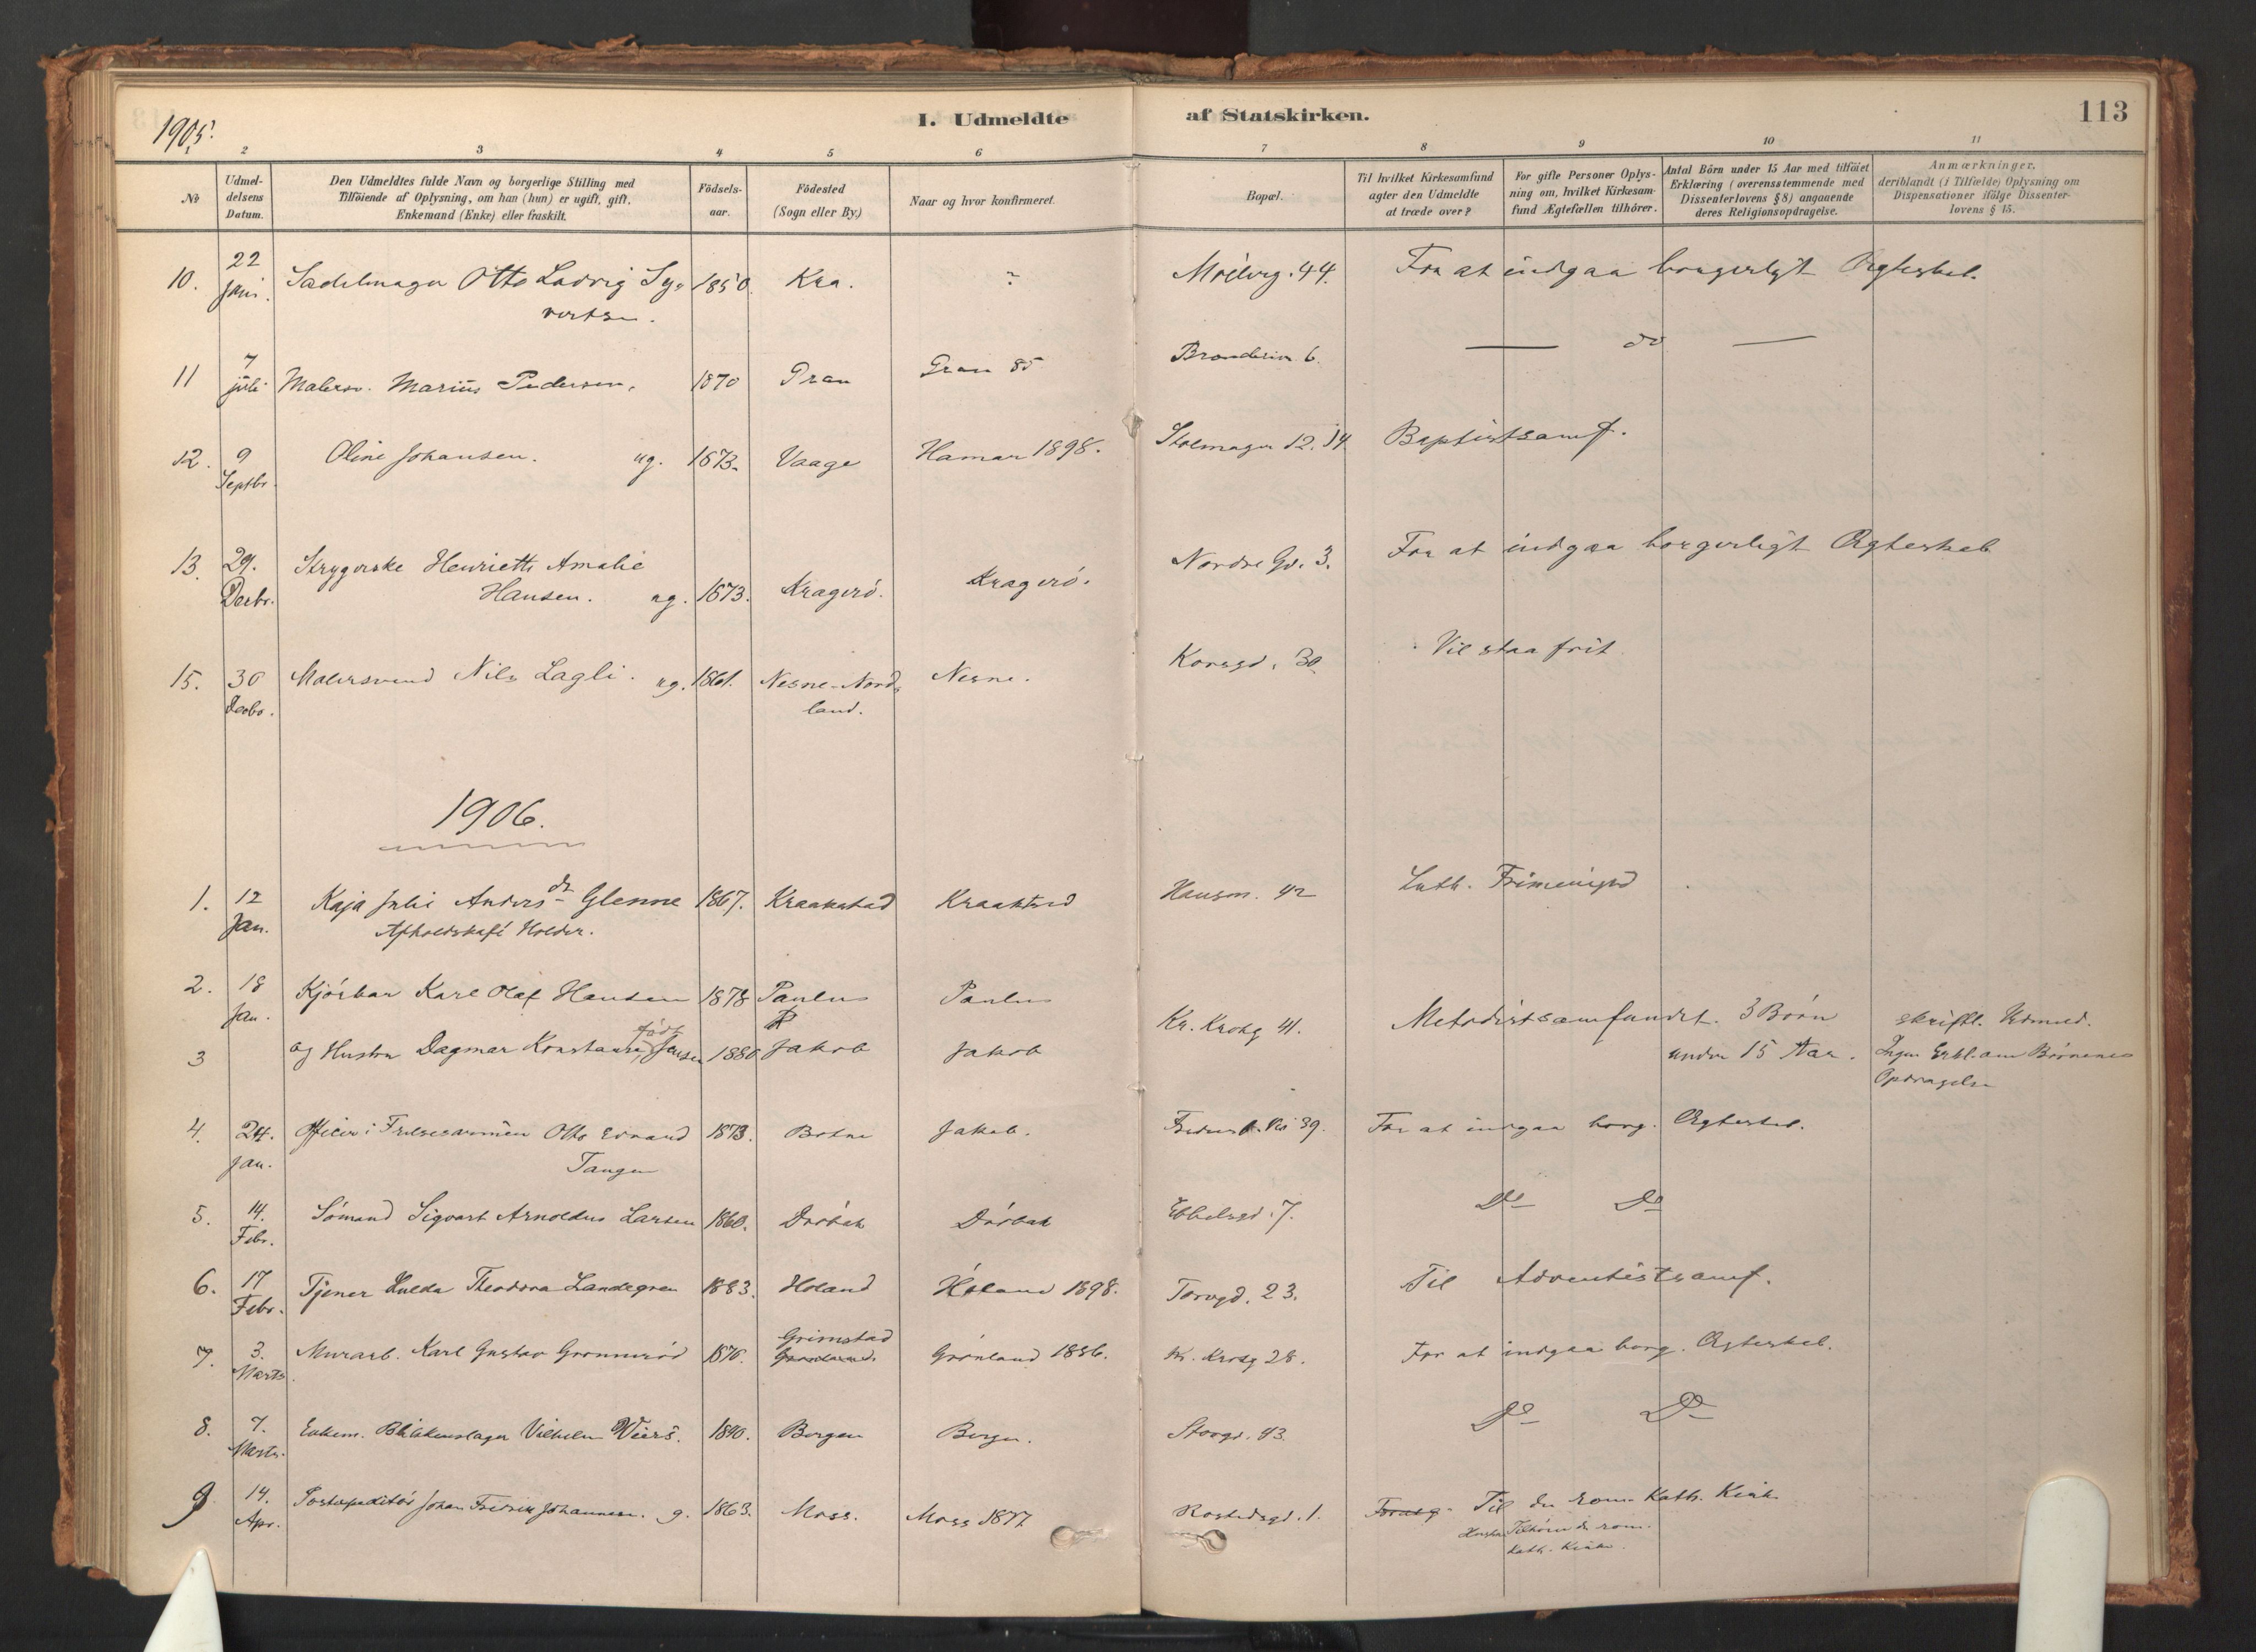 1905.
I. Udmeldte af Statskirken.
113
1 2 3 4 5 6 7 8 9 10 11
No
Udmel-
delsens
Datum.
Den Udmeldtes fulde Navn og borgerlige Stilling med
Tilföiende af Oplysning, om han (hun) er ugift, gift,
Enkemand (Enke) eller fraskilt.
Födsels-
aar.
Födested
(Sogn eller By.)
Naar og hvor konfirmeret.
Bopæl.
Til hvilket Kirkesamfund
agter den Udmeldte
at træde over?
For gifte Personer Oplys-
ning om, hvilket Kirkesam-
fund Ægtefællen tilhörer.
Antal Börn under 15 Aar med tilföiet
Erklæring (overensstemmende med
Dissenterlovens § 8) angaaende
deres Religionsopdragelse.
Anmærkninger,
deriblandt (i Tilfælde) Oplysning om
Dispensationer ifölge Dissenter-
lovens § 15.
10. 22 Sadelmager Otto Ludvig Sy- 1850. Kra. ? 44. For at indgaa borgerligt Ægteskab.
Juni. vertsen.
11 7 juli Malersv. Marius Pedersen. 1870 Gran Gran 85 6. do
12. 9 Oline Johansen. ug. 1873. Vaage Hamar 1898. Stolmager 12. 14 Baptistsamf.
Septbr.
13. 29. Strygerske Henriette Amalie Nordre Gd. 3. For at indgaa borgerligt Ægteskab
Decbr. Hansen. ug. 1873. Kragerö. Kragerö.
15. 30 Malersvend Nils Lagli. ug. 1861. Nesne-Nord- Nesne. Korsgd. 30. Vil staa frit
Decbr. land.
1906.
1. 12 Kaja Julie Anders-dr Glenne 1867. Kraakstad Kraakstad Hausm. 42 Luth. Frimenighd.
Jan. Afholdskafé Holder.
2. 18 Kjörkar Karl Olaf Hansen 1878 Paulus Paulus
Jan. Kr. Krohg 41. Metodistsamfundet. 3 Börn skriftl. Udmeld.
3 og Hustru Dagmar Konstanse, född Jensen 1880 Jakob Jakob under 15 Aar. Ingen Erkl. om Börnenes
Opdragelse
4. 24. Officer i Frelsesarmeen Otto Edvard 1873. Botne Jakob. 39. For at indgaa borg. Ægteskab.
Jan. Tangen
5. 14. Sömand Sigvart Arnoldus Larsen 1860. Dröbak Dröbak 7. Do Do
Febr.
6. 17 Tjener Hulda Theodora Landegren 1883. Höland Höland 1898. Torvgd. 23. Til Adventistsamf.
Febr.
7. 3. Murarb. Karl Gustav Grönneröd 1870. Grimstad Grönland 1886. Kr. Krohg 28. For at indgaa borg. Ægteskab.
Marts.
8. 7. Enkem. Blikkenslager Vilhelm 1840. Bergen Bergen. Storgd. 43. Do Do
Marts.
9 14. Postexpeditör Johan Fredrik Johannesen. g. 1863. Moss. Moss 1877 Rostedsgd. 1. Til den rom. Kath. Kirke
Apr. Hustru Tilhörer den rom.
kath. Kirke.